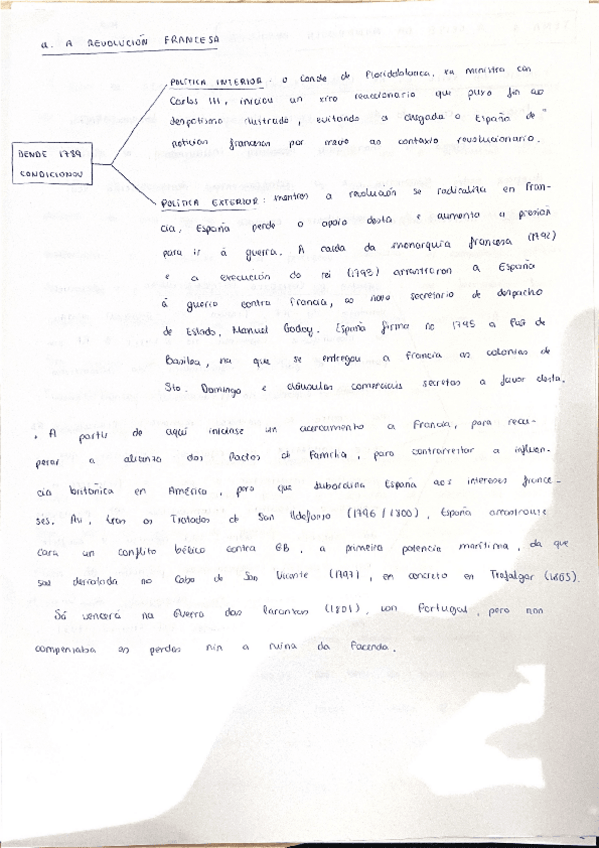 a. A REVOLUCIÓN FRANCESA
POLÍTICA INTERIOR: o Conde de Floridablanca, ex ministro con
Carlos III, iniciou un xiro reaccionario que puxo fin ao
despotismo ilustrado, evitando a chegada a España de
noticias francesas por medo ao contaxio revolucionario.
DENDE 1789
CONDICIONOU
POLÍTICA EXTERIOR: mentres a revolución se radicaliza en Fran-
cia, España perde o apoio desta e aumenta a presión
para ir á guerra. A caída da monarquía francesa (1792)
e a execución do rei (1793) arrastraron a España
á guerra contra Francia, ao novo secretario de despacho
de Estado, Manuel Godoy. España firma no 1795 a Paz de
Basilea, na que se entregou a Francia as colonias de
Sto. Domingo e cláusulas comerciais secretas a favor desta.
. A partir de aquí iníciase un acercamento a Francia, para recu-
perar a alianza dos Pactos de Familia, para contrarrestar a influen-
cia británica en América, pero que subordina España aos intereses france-
ses. Así, tras os Tratados de San Ildefonso (1796/1800), España arrástrase
cara un conflito bélico contra GB, a primeira potencia marítima, da que
sae derrotada no Cabo de San Vicente (1797), en concreto en Trafalgar (1805).
Só vencerá na Guerra das Laranxas (1801), con Portugal, pero non
compensaba as perdas nin a ruína da Facenda.